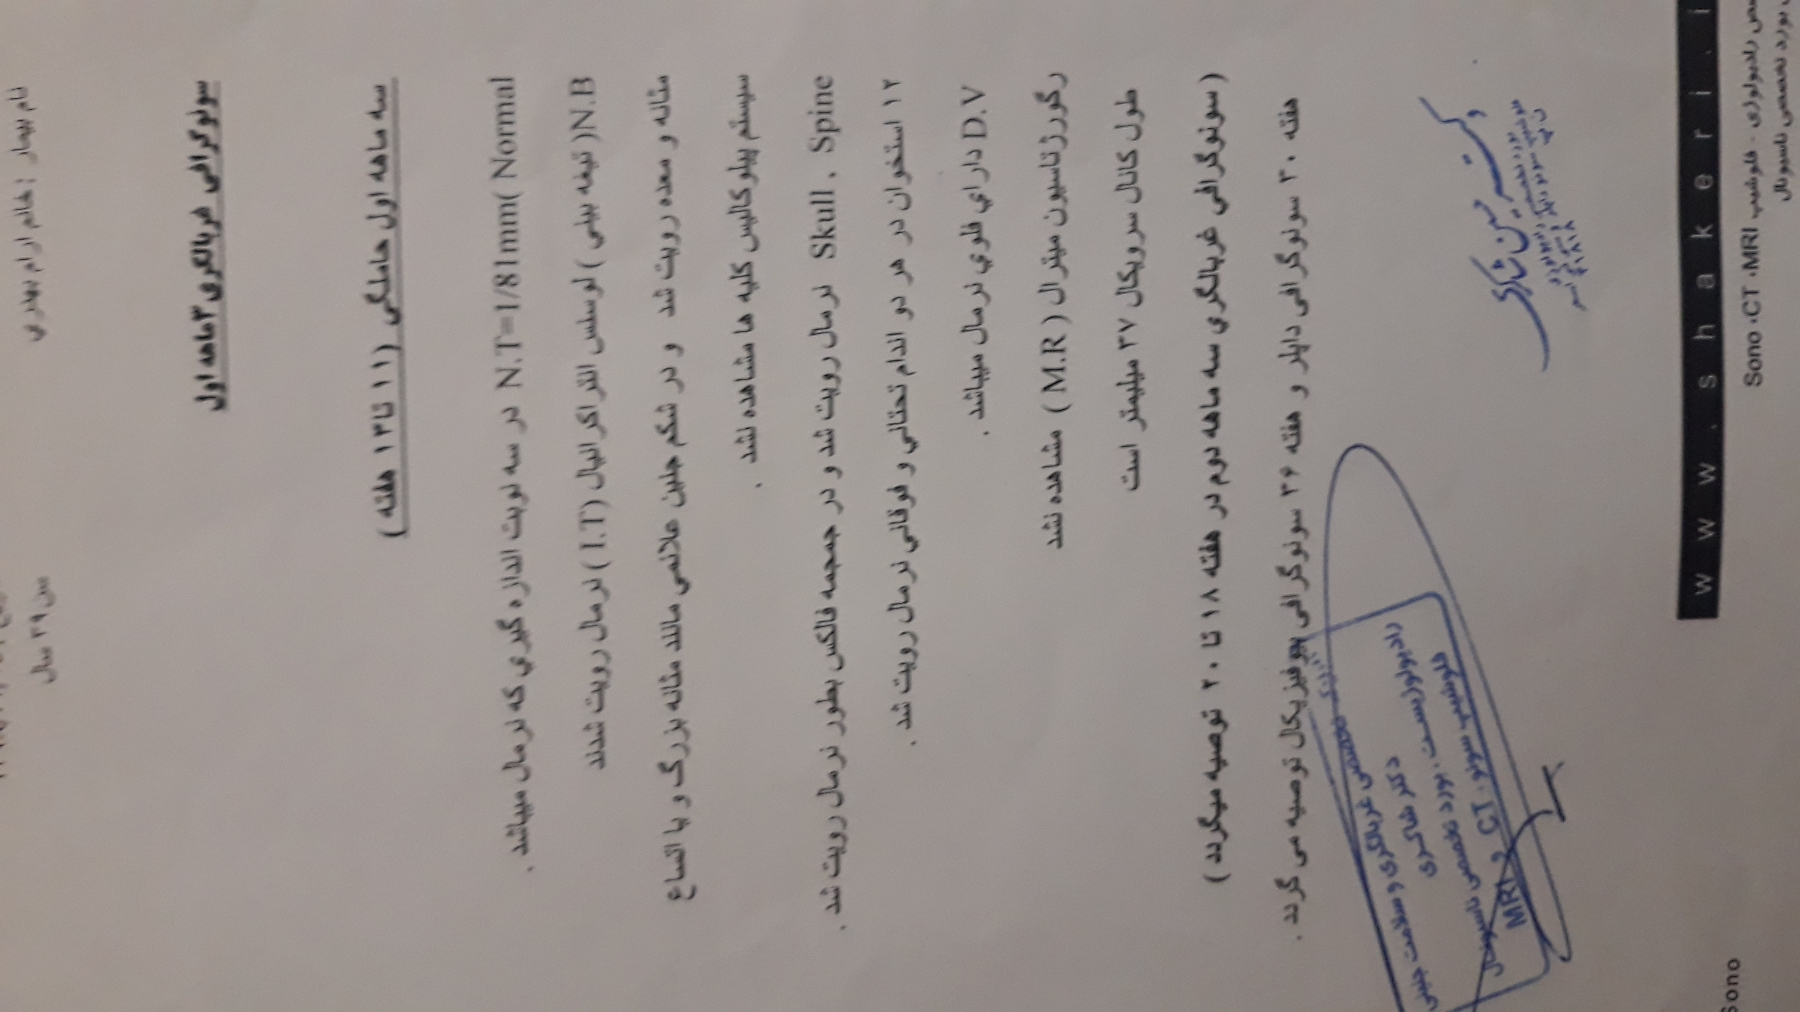 نام بیمار : خانم ارام بهدري
سن ۲۹ سال
سونوگرافي غربالگري ۳ماهه اول
سه ماهه اول حاملگي (۱۱ تا۱۳ هفته )
N.T=1/81mm( Normal در سه نوبت اندازه گيري كه نرمال ميباشد .
N.B( تيغه بيني ) لوسنس انتراكرانيال (I.T ) نرمال رويت شدند
مثانه و معده رويت شد و در شكم جنين علائمي مانند مثانه بزرگ و يا اتساع
سيستم پيلوكاليس كليه ها مشاهده نشد .
Skull , Spine نرمال رويت شد و در جمجمه فالكس بطور نرمال رويت شد .
۱۲ استخوان در هر دو اندام تحتاني و فوقاني نرمال رويت شد .
D.V داراي فلوي نرمال ميباشد .
رگورژتاسيون ميترال ( M.R ) مشاهده نشد
طول كانال سرويكال ۳۷ ميليمتر است
( سونوگرافي غربالگري سه ماهه دوم در هفته ۱۸ تا ۲۰ توصيه ميگردد )
هفته ۳۰ سونوگرافي داپلر و هفته ۳۶ سونوگرافي بيوفيزيكال توصيه مي گردد .
تخصصی غربالگری و سلامت جنین
دکتر شاکری
رادیولوژیست . بورد تخصصی ناسیونال
فلوشیپ سونو . CT و MRI
www.shakeri.i
رادیولوژی - فلوشیپ Sono ،CT ،MRI
بورد تخصصی ناسیونال
Sono